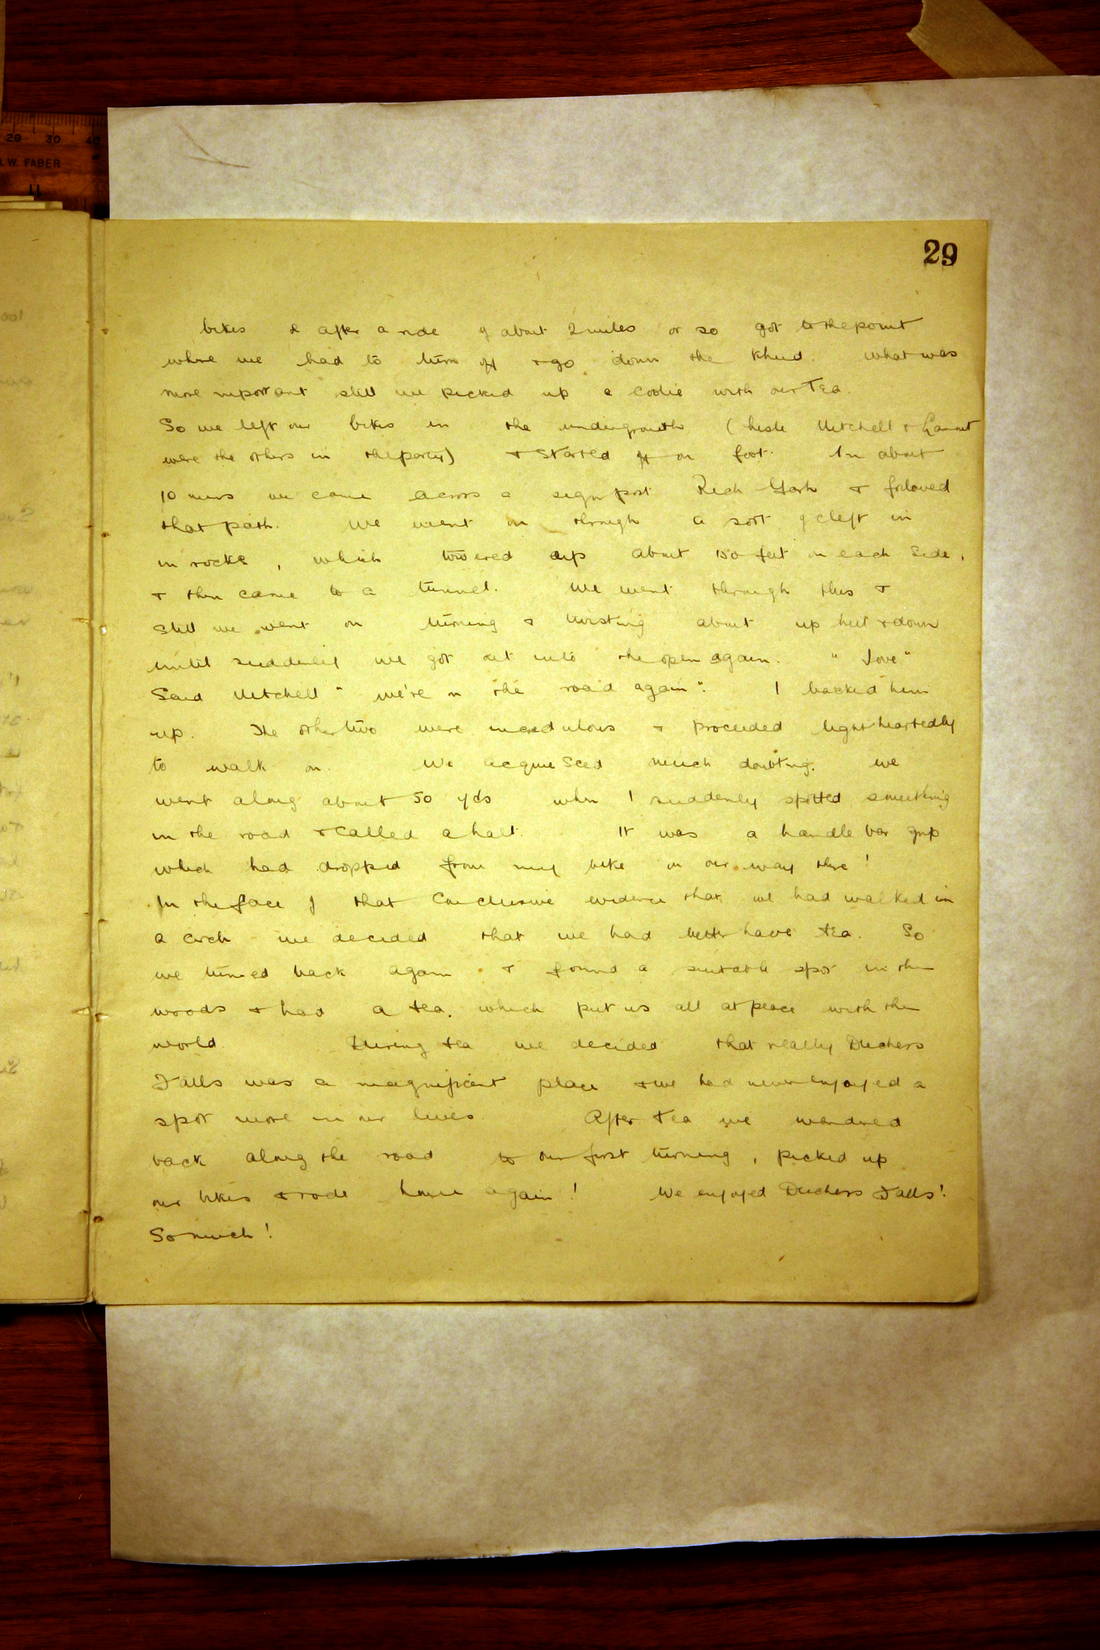 20 30 40
W. FABER
11
29
bikes & after a ride of about 2 miles or so got to the point
where we had to turn off & go down the khud. What was
more important still we picked up a coolie with our Tea.
So we left our bikes in the undergrowth ( Mitchell &
were the others in the party) & started off on foot. In about
10 mins we came across a sign post & followed
that path. We went on through a sort of cleft in
in rocks, which towered up about 150 feet on each side,
& then came to a tunnel. We went through this &
still we went on turning & twisting about up hill & down
until suddenly we got out into the open again. " Jove"
Said Mitchell " we're on the road again". I backed him
up. The other two were incredulous & proceeded lightheartedly
to walk on. We acquiesced much doubting. We
went along about 50 yds when I suddenly spotted something
in the road & called a halt. It was a handle bar grip
which had dropped from my bike on our way there!
In the face of that conclusive evidence that we had walked in
a circle we decided that we had better have tea. So
we turned back again & found a suitable spot in the
woods & had a tea, which put us all at peace with the
world. During tea we decided that really Duchess
Falls was a magnificent place & we had never enjoyed a
spot more in our lives. After tea we wandered
back along the road to our first turning, picked up
our bikes & rode home again! We enjoyed Duchess Falls!
So much!